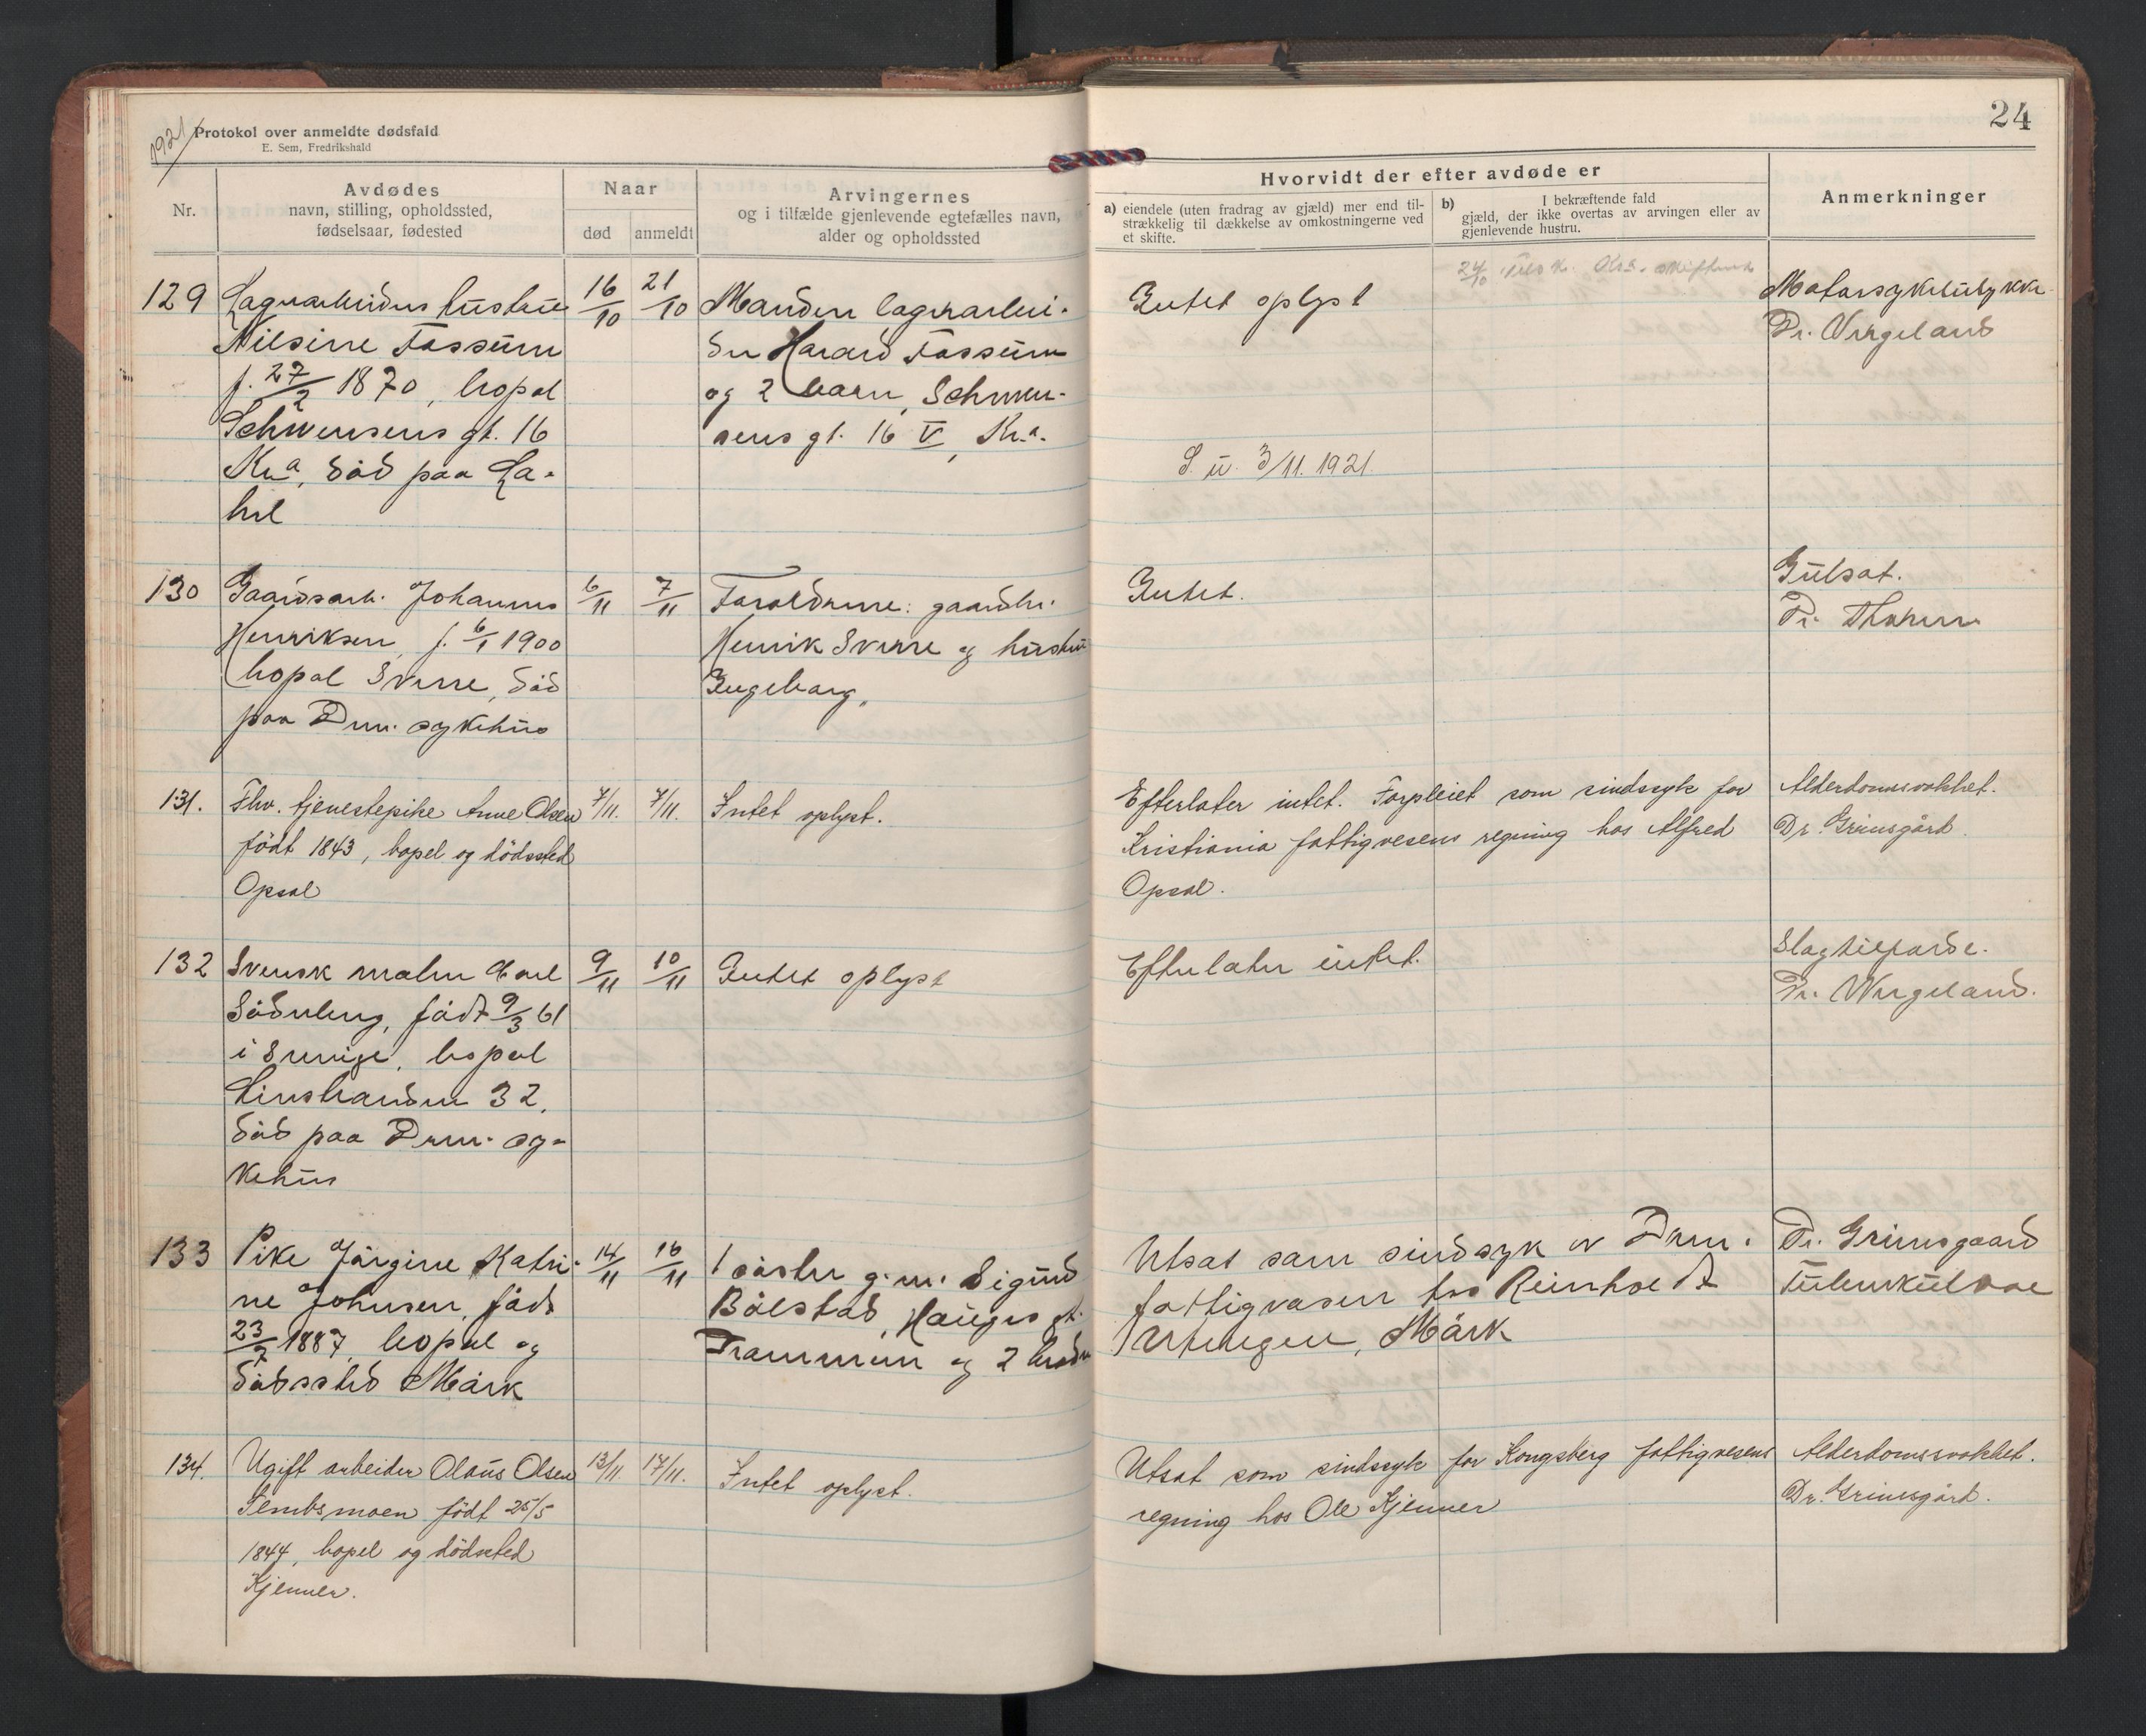 1921
Protokol over anmeldte dødsfald
E. Sem, Fredrikshald
24
Nr.
Avdødes
navn, stilling, opholdssted,
fødselsaar, fødested
Naar
død
anmeldt
Arvingernes
og i tilfælde gjenlevende egtefælles navn,
alder og opholdssted
Hvorvidt der efter avdøde er
a) eiendele (uten fradrag av gjæld) mer end til-
strækkelig til dækkelse av omkostningerne ved
et skifte.
b) I bekræftende fald
gjæld, der ikke overtas av arvingen eller av
gjenlevende hustru.
Anmerkninger
129
Lagerarbeiders hustru
Nilsine Fossum
f. 27/2 1870, bopæl
Schwensens gt. 16
Kr.a, död paa La-
hel
16/10
21/10
Manden lagerarbei-
der Harald Fossum
og 2 barn, Schwen-
sens gt. 16 V, Kr.a.
Intet oplyst
24/10
S. u. 3/11. 1921
Motorsykkelulykke
Dr. Wergeland
130
Gaardsarb. Johannes
Henriksen, f. 6/1 1900
bopæl Sverre, död
paa Drm. sykehus
6/11
7/11
Forældrene: gaardbr.
Henrik Sverre og hustru
Ingeborg.
Intet.
Gulsot.
Dr. Thoresen
131.
Fhv. tjenestepike Anne Olsen
födt 1843, bopel og dödssted
Opsal
7/11.
7/11.
Intet oplyst.
Efterlater intet. Forpleiet som sindssyk for
Kristiania fattigvesens regning hos Alfred
Opsal.
Alderdomssvakhet.
Dr. Grimsgård.
132
Svensk maler Carl
Söderberg, födt 9/3 61
i Sverige, bopæl
Tinstranden 32,
död paa Drm. sy-
kehus
9/11
10/11
Intet oplyst
Efterlater intet.
Slagtilfælde.
Dr. Wergeland.
133
Pike Jörgine Katri-
ne Johnsen, födt
23/7 1887, bopæl og
dödssted Mörk
14/11
16/11
1 söster g. m. Sigurd
Bölstad, Hauges gt.
Drammen og 2 brødre
Utsat som sindssyk av Drm.
fattigvæsen hos Reinholdt
Mörk
Dr. Grimsgaard
Tuberkulose
134.
Ugift arbeider Olaus Olsen
Sembsmoen födt 25/5
1844, bopel og dödssted
Kjenner.
13/11.
17/11.
Intet oplyst.
Utsat som sindssyk for Kongsberg fattigvesens
regning hos Ole Kjenner
Alderdomssvakhet.
Dr. Grimsgård.